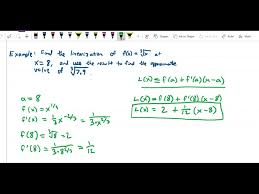 Example: Find the linearization of f(x) = ∛x at
x=8, and use the result to find the approximate
value of ∛7.9.
L(x) = f(a) + f'(a)(x-a)
a = 8
f(x) = x^{1/3}
f'(x) = 1/3 x^{-2/3} = 1/(3x^{2/3})
f(8) = ∛8 = 2
f'(8) = 1/(3·8^{2/3}) = 1/12
L(x) = f(8) + f'(8)(x-8)
L(x) = 2 + 1/12 (x-8)